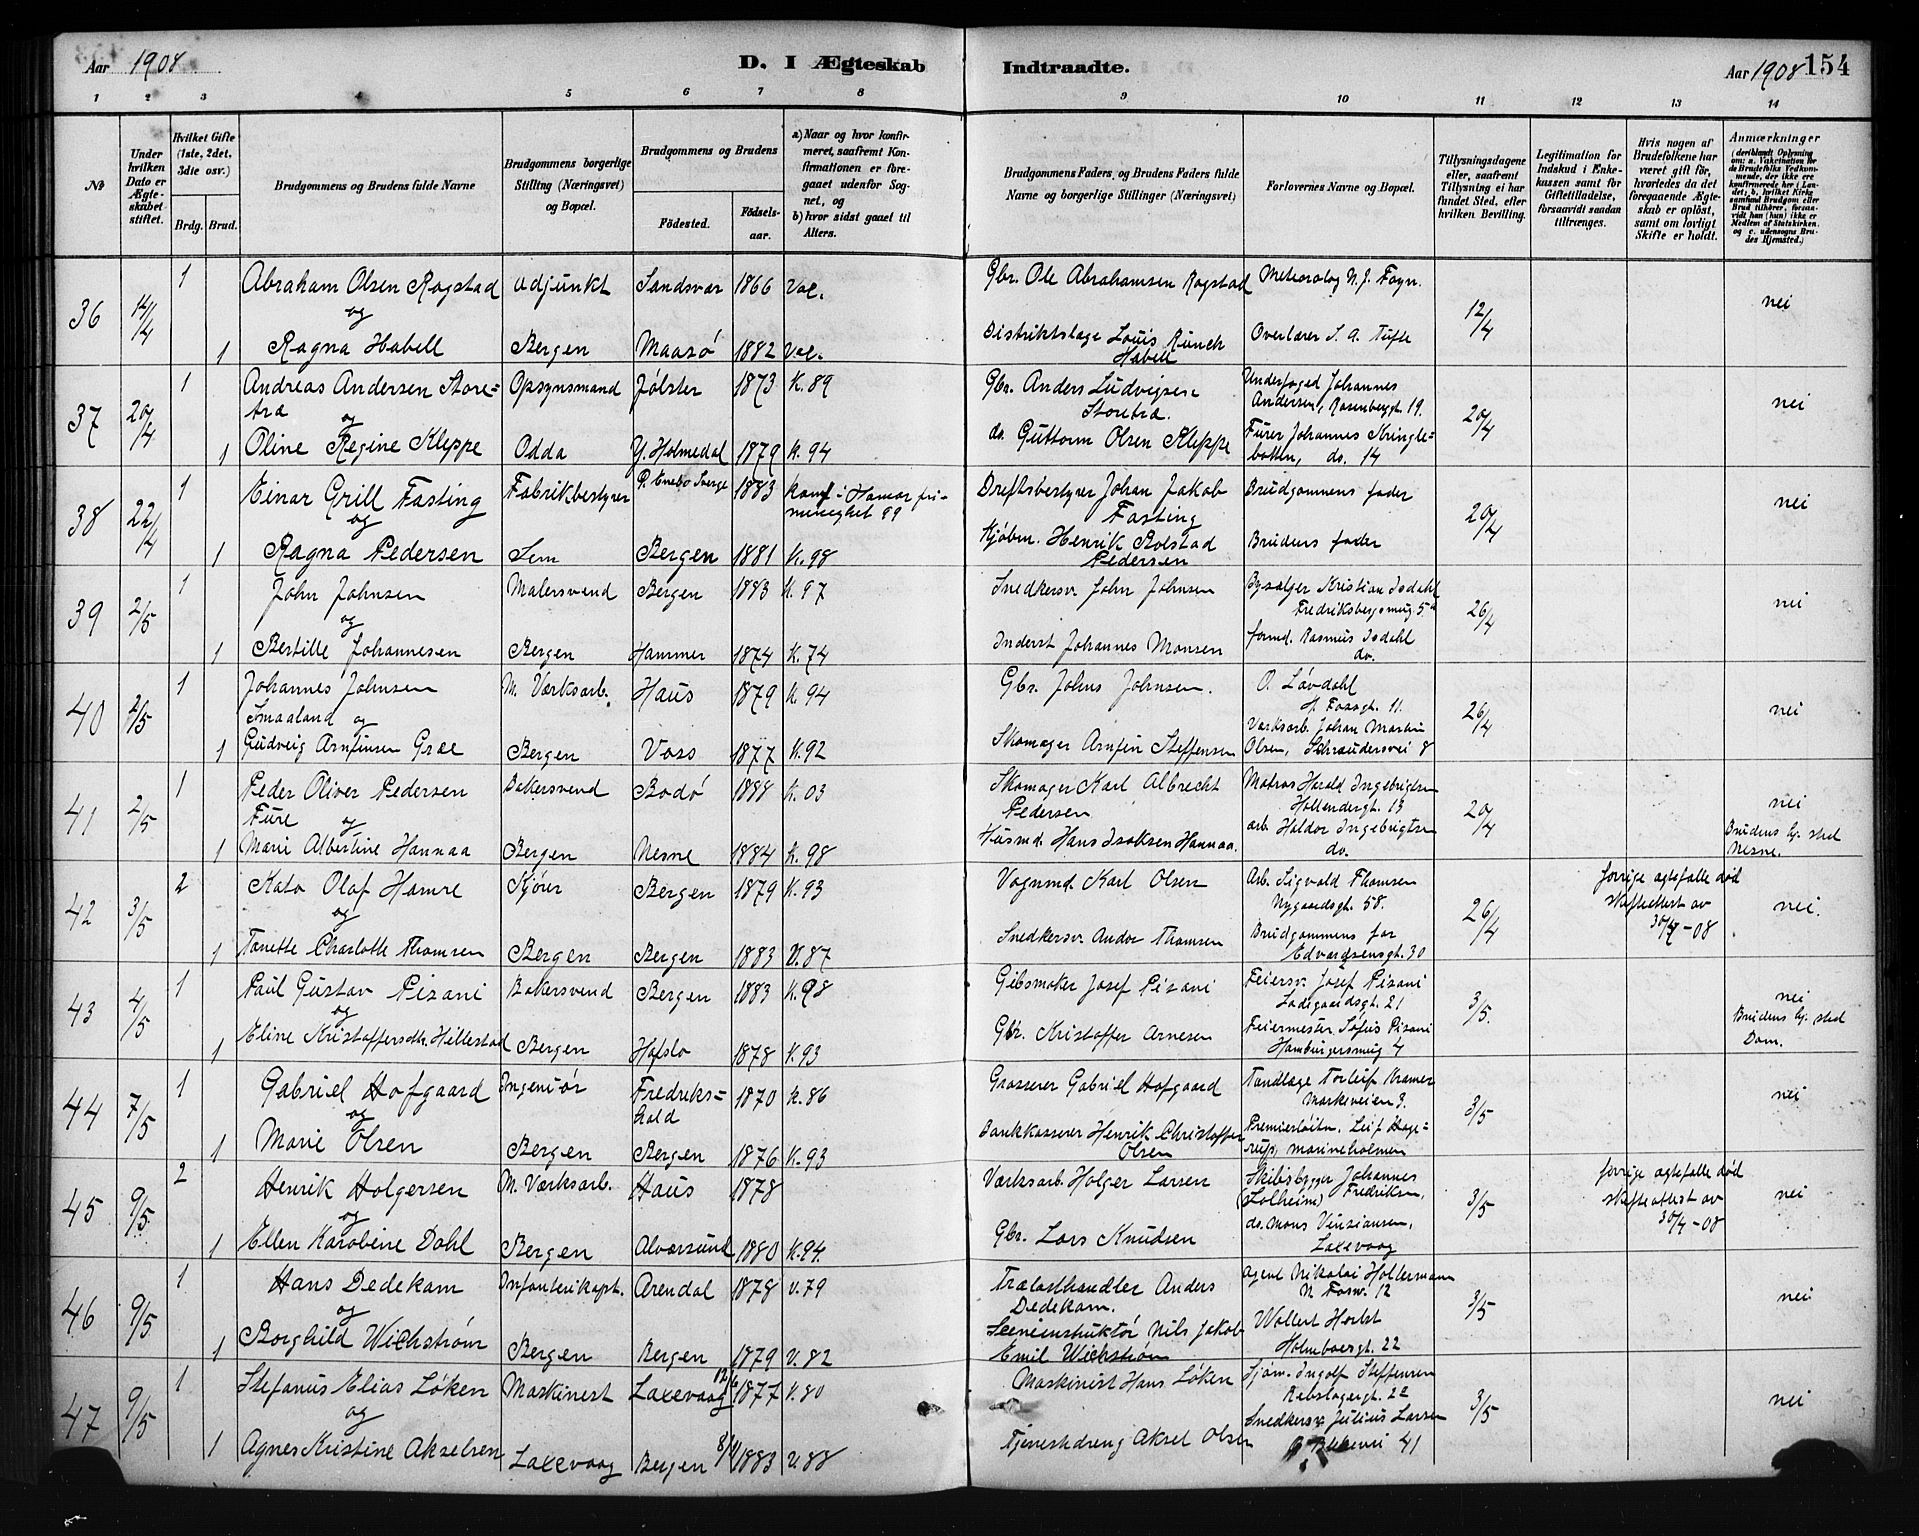 Aar 1908
D. I Ægteskab Indtraadte.
Aar 1908 154
1 2 3 4 5 6 7 8 9 10 11 12 13 14
No
Under hvilken Dato er Ægteskabet stiftet.
Hvilket Gifte (1ste, 2det, 3die osv.)
Brdg. Brud.
Brudgommens og Brudens fulde Navne
Brudgommens borgerlige Stilling (Næringsvei) og Bopæl.
Brudgommens og Brudens
Födested.
Födselsaar.
a) Naar og hvor konfirmeret, saafremt Konfirmationen er foregaaet udenfor Sognet, og
b) hvor sidst gaaet til Alters.
Brudgommens Faders og Brudens Faders fulde Navne og borgerlige Stillinger (Næringsvei)
Forlovernes Navne og Bopæl.
Tillysningsdagene eller, saafremt Tillysning ei har fundet Sted, efter hvilken Bevilling.
Legitimation for Indskud i Enkekassen samt for Giftetilladelse, forsaavidt saadan tiltrænges.
Hvis nogen af Brudefolkene har været gift för, hvorledes da det foregaaende Ægteskab er oplöst, samt om lovligt Skifte er holdt.
Anmærkninger
36 14/4 1 Abraham Olsen Rogstad adjunkt Sandsvær 1866 Gbr. Ole Abrahamsen Rogstad Meteorolog N. J. Føyn. 12/4 nei
og
1 Ragna Habell Bergen Maasö 1882 Distriktslæge Louis Runch Habell Overlærer S. A. Tufte
37 20/4 1 Andreas Andersen Storetræ Opsynsmand Jölster 1873 K. 89 Gbr. Anders Ludvigsen Storetræ. Underfoged Johannes Andersen, Rosenbergt. 19. 20/4 nei
og
1 Oline Regine Kleppe Odda Y. Holmedal 1879 K. 94 do. Guttorm Olsen Kleppe Furer Johannes Kringlebotten, do. 14
38 22/4 1 Einar Grill Fasting Fabrikbestyrer 1883 konf i Hamar frimenighet 99 Driftsbestyrer Johan Jakob Fasting Brudgommens fader 20/4 nei
og
1 Ragna Pedersen Sem Bergen 1881 K. 98 Kjöbm. Henrik Rolstad Pedersen Brudens fader
39 2/5 1 John Johnsen Malersvend Bergen 1883 K. 97 Snedkersv. John Johnsen Bysælger Kristian Isdahl 26/4 nei
og
1 Bertille Johannesen Bergen Hammer 1874 K. 74 Inderst Johannes Monsen formd. Rasmus Isdahl do.
40 2/5 1 Johannes Johnsen Smaaland M. Værksarb. Haus 1879 K. 94 Gbr. Johns Johnsen. O. Lövdahl H. Fossgt. 11. 26/4 nei
og
1 Gudveig Arnfinsen Græe Bergen Voss 1877 K. 92 Skomager Arnfin Steffensen Værksarb. Johan Martin Olsen, 8
41 2/5 1 Peder Oliver Pedersen Fure Bakersvend Bodö 1888 K. 03 Skomager Karl Albrecht Pedersen Matros Harald Ingebrigtsen Hollendergt. 13 20/4 nei
og
1 Marie Albertine Hannaa Bergen Nesne 1884 K. 98 Husmd. Hans Isaksen Hannaa. arb. Haldor Ingebrigtsen do. Brudens hj. sted Nesne.
42 3/5 2 Kato Olaf Hamre Kjörer Bergen 1879 K. 93 Vognmd. Karl Olsen Arb. Sigvald Thomsen Nygaardsgt. 58. 26/4 forrige ægtefælle död skifteattest av 30/4-08 nei.
og
1 Tonette Charlotte Thomsen Bergen Bergen 1883 V. 87 Snedkersv. Andor Thomsen Brudgommens far Edvardsensgt. 30
43 4/5 1 Paul Gustav Pizani Bakersvend Bergen 1883 K. 98 Gibsmaker Josef Pizani Feiersv. Josef Pizani Ladegaardsgt. 21 3/5. nei
og
1 Eline Kristoffersdtr. Hillestad Bergen Hafslo 1878 K. 93 Gbr. Kristoffer Arnesen Feiermester Sofus Pizani Hamburgersmug 4 Brudens hj. sted Dom.
44 7/5 1 Gabriel Hofgaard Ingeniör Fredrikshald 1870 K. 86 Grosserer Gabriel Hofgaard Tandlæge Torleif Kramer Markeveien 3. 3/5 nei
og
1 Marie Olsen Bergen Bergen 1876 K. 93 Bankkasserer Henrik Christoffer Olsen Premierløitn. Leif Hagerup, marineholmen
45 9/5 2 Henrik Holgersen M. Værksarb. Haus 1878 Værksarb. Holger Larsen Skibsbygger Johannes (Solheim) Fredriksen, 3/5 forrige ægtefælle död skifteattest av 30/4-08 nei
og
1 Ellen Karoline Dahl Bergen Alversund 1880 K. 94. Gbr. Lars Knudsen do. Mons Vinziansen, Laxevaag
46 9/5 1 Hans Dedekam Infanterikapt. Arendal 1878 V. 79 Trælasthandler Anders Dedekam. Agent Nikolai Holtermann 12 3/5 nei
og
1 Borghild Wichström Bergen Bergen 1879 V. 82 Sceneinstruktör Nils Jakob Emil Wichström Wollert Herbst Holmboesgt. 22
47 9/5 1 Stefanus Elias Löken Maskinist Laxevaag 1877 V. 80 Maskinist Hans Löken Sjöm. Ingolf Steffensen Rebslagergt. 22 3/5 nei
og
1 Agnes Kristine Akselsen Laxevaag Bergen 1883 V. 88 Tjenestedreng Aksel Olsen Snedkersv. Julius Larsen 41